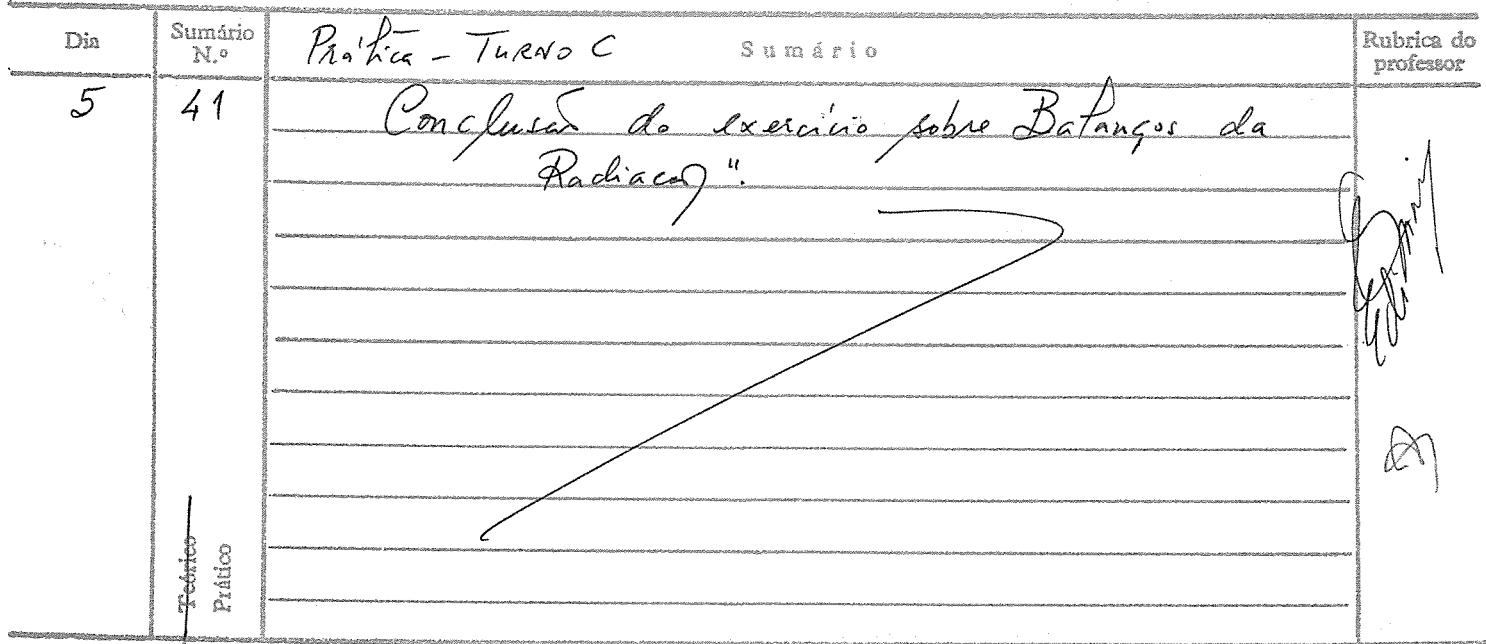 Dia
Sumário N.º
Prática - TURNO C
Sumário
Rubrica do professor
5
41
Conclusão do exercício sobre Balanços da
Radiação".
Teórico
Prático